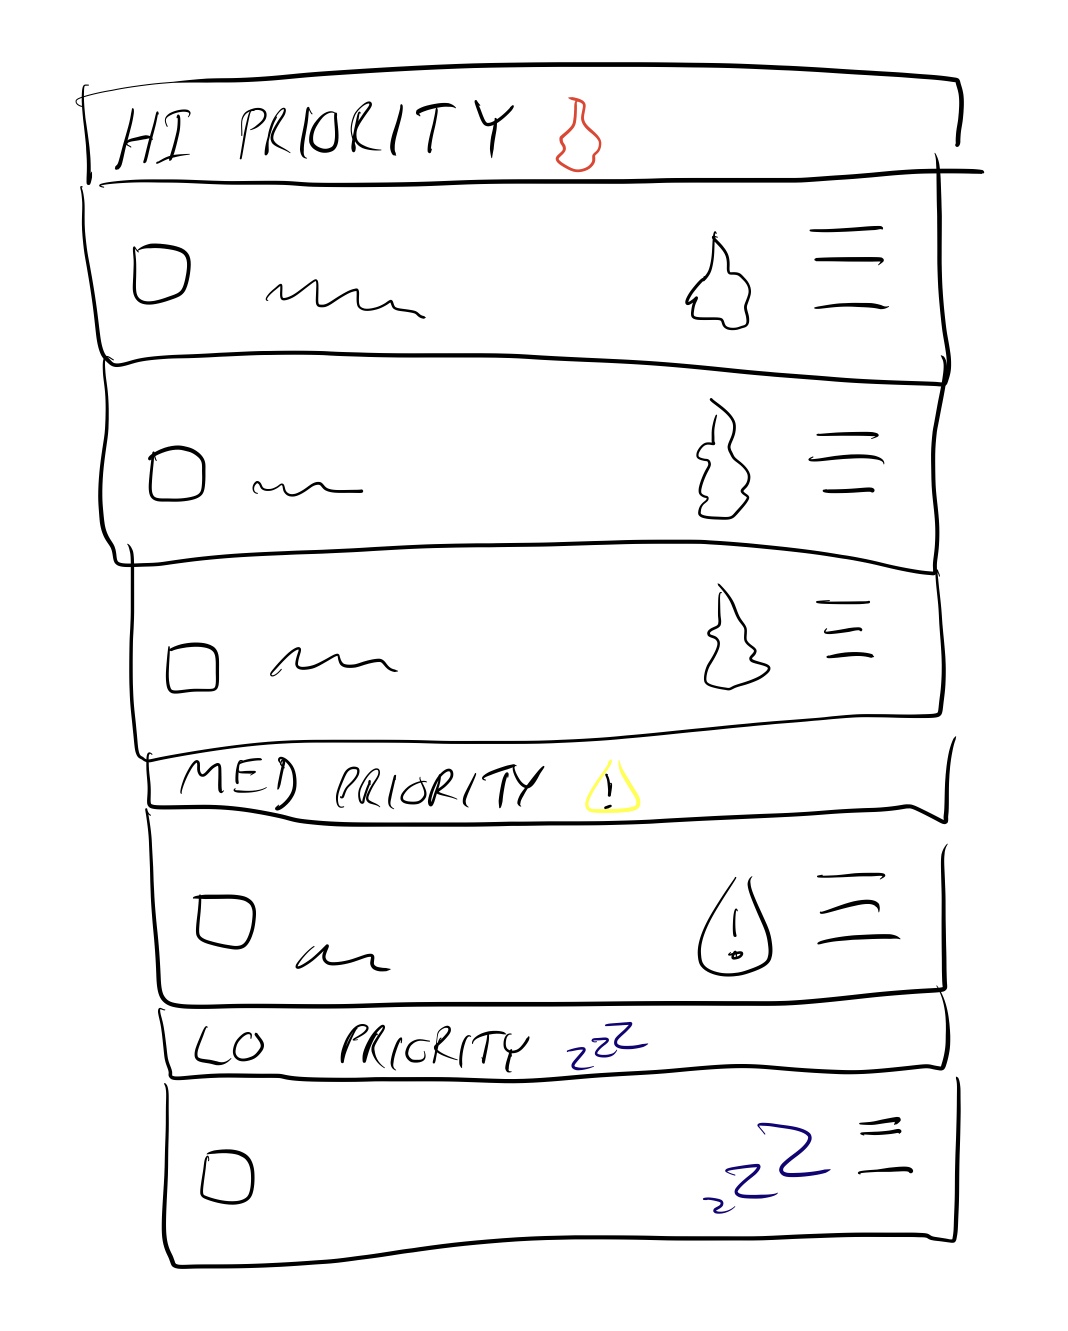 HI PRIORITY
MED PRIORITY !
!
LO PRIORITY zzz
zzZ